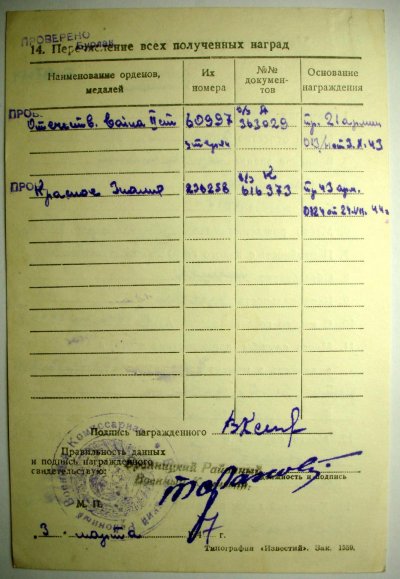 ПРОВЕРЕНО
14. Перечисление всех полученных наград
Наименование орденов, медалей
Их номера
№№ документов
Основание награждения
ПРОВ.
Отечеств. война II ст
60997
о/з А 363029
пр. 21 армии
утерян
013/н от 3.X.43
ПРОВ.
Красное Знамя
236258
о/з К 616373
пр 43 арм.
Подпись награжденного
Правильность данных
и подпись награжденного
свидетельствую:
Районный
Военный
должность и подпись
М. П.
„3„ марта 194 7
Типография «Известий». Зак. 1559.